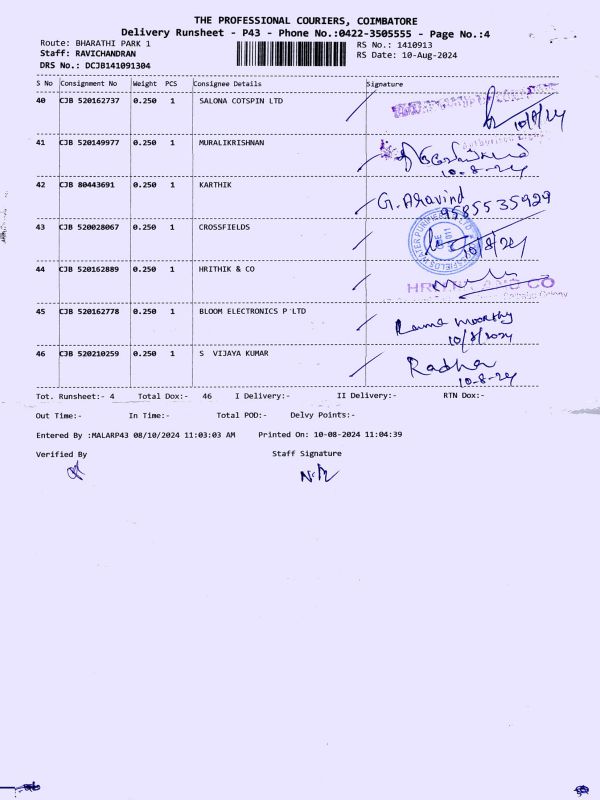 THE PROFESSIONAL COURIERS, COIMBATORE
Delivery Runsheet - P43 - Phone No.:0422-3505555 - Page No.:4
Route: BHARATHI PARK 1 RS No.: 1410913
Staff: RAVICHANDRAN RS Date: 10-Aug-2024
DRS No.: DCJB141091304
S No Consignment No Weight PCS Consignee Details Signature
40 CJB 520162737 0.250 1 SALONA COTSPIN LTD 10/8/24
41 CJB 520149977 0.250 1 MURALIKRISHNAN
10-8-24
42 CJB 80443691 0.250 1 KARTHIK G. Aravind
9585535929
43 CJB 520028067 0.250 1 CROSSFIELDS
10/8/24
44 CJB 520162889 0.250 1 HRITHIK & CO
45 CJB 520162778 0.250 1 BLOOM ELECTRONICS P LTD
Rama moorthy
10/8/2024
46 CJB 520210259 0.250 1 S VIJAYA KUMAR Radha
10-8-24
Tot. Runsheet:- 4 Total Dox:- 46 I Delivery:- II Delivery:- RTN Dox:-
Out Time:- In Time:- Total POD:- Delvy Points:-
Entered By :MALARP43 08/10/2024 11:03:03 AM Printed On: 10-08-2024 11:04:39
Verified By Staff Signature